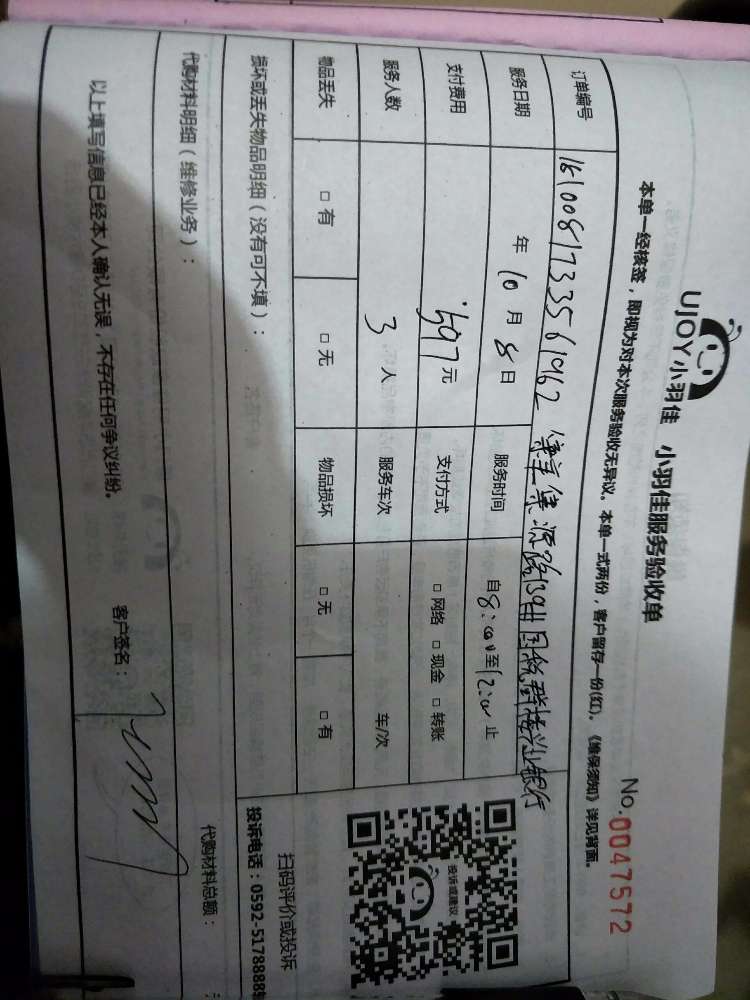 UJOY小羽佳 小羽佳服务验收单
No.0047572
本单一经核签，即视为对本次服务验收无异议。本单一式两份，客户留存一份(红)。《维保须知》详见背面。
订单编号 1610081733561962
服务日期 年 10 月 8 日 服务时间 自 8:00 至 12:00 止
支付费用 597 元 支付方式 □ 网络 □ 现金 □ 转账
服务人数 3 人 服务车次 车/次
物品丢失 □ 有 □ 无 物品损坏 □ 无 □ 有
损坏或丢失物品明细（没有可不填）：
代购材料明细（维修业务）：
代购材料总额：
以上填写信息已经本人确认无误，不存在任何争议纠纷。
客户签名：
投诉或建议
UJOY
扫码评价或投诉
投诉电话：0592-5178888